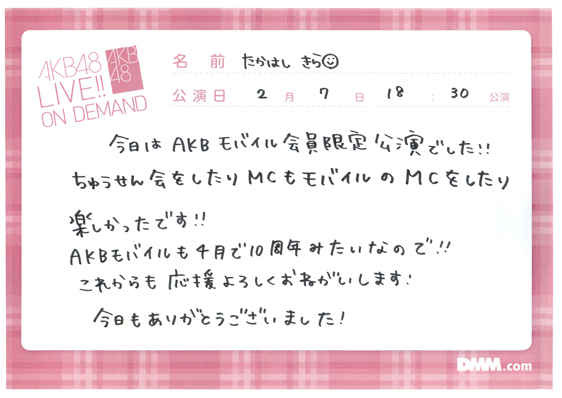 AKB48
LIVE!!
ON DEMAND
AKB
48
名前 たかはし きら
公演日 2月7日 18:30公演
今日は AKB モバイル会員限定 公演でした!!
ちゅうせん会をしたり MCもモバイルの MCをしたり
楽しかったです!!
AKBモバイルも4月で10周年みたいなので!!
これからも 応援よろしくおねがいします!
今日もありがとうございました!
DMM.com